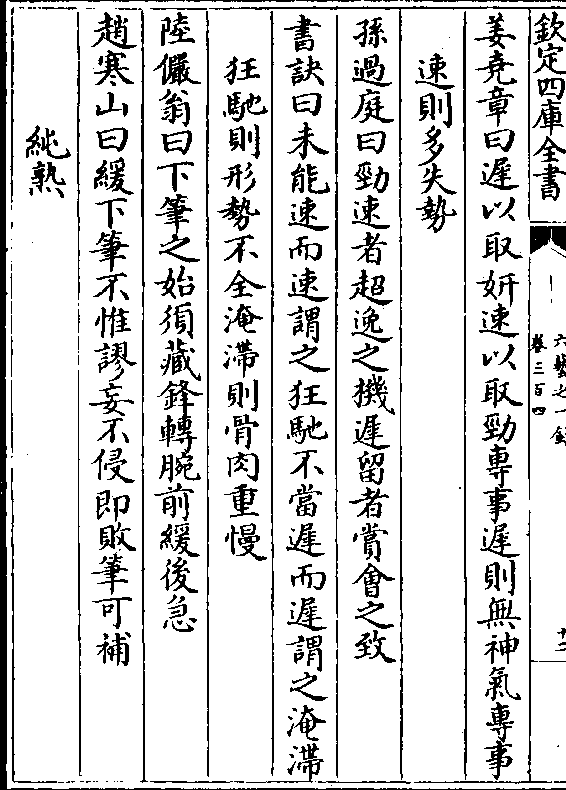 欽定四庫全書
六藝之一錄
卷三百四
十二
姜堯章曰遲以取妍速以取勁專事遲則無神氣專事
速則多失勢
孫過庭曰勁速者超逸之機遲留者賞會之致
書訣曰未能速而速謂之狂馳不當遲而遲謂之淹滯
狂馳則形勢不全淹滯則骨肉重慢
陸儼翁曰下筆之始須藏鋒轉腕前緩後急
趙寒山曰緩下筆不惟謬妄不侵即敗筆可補
純熟